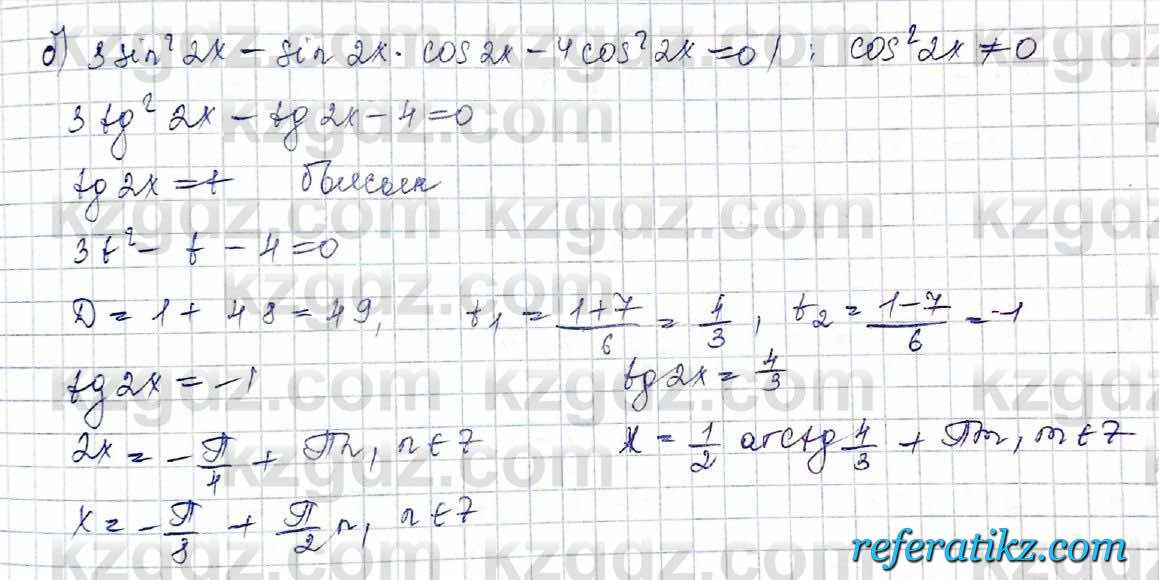 б) 3 sin² 2x − sin 2x · cos 2x − 4 cos² 2x = 0 / : cos² 2x ≠ 0
3 tg² 2x − tg 2x − 4 = 0
tg 2x = t болсын
3t² − t − 4 = 0
D = 1 + 48 = 49, t₁ = (1+7)/6 = 4/3, t₂ = (1−7)/6 = −1
tg 2x = −1 tg 2x = 4/3
2x = − π/4 + πn, n ∈ Z x = 1/2 arctg 4/3 + πn, n ∈ Z
x = − π/8 + π/2 n, n ∈ Z
kzgdz.com
referatikz.com